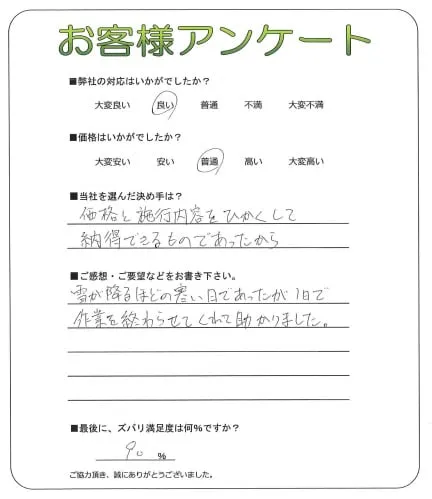 お客様アンケート
■弊社の対応はいかがでしたか?
大変良い 良い 普通 不満 大変不満
■価格はいかがでしたか?
大変安い 安い 普通 高い 大変高い
■当社を選んだ決め手は?
価格と施行内容をひかくして
納得できるものであったから
■ご感想・ご要望などをお書き下さい。
雪が降るほどの寒い日であったが1日で
作業を終わらせてくれて助かりました。
■最後に、ズバリ満足度は何%ですか?
90 %
ご協力頂き、誠にありがとうございました。